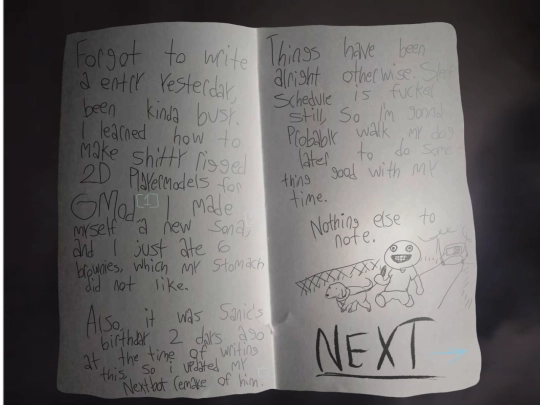 Forgot to write
a entry Yesterday,
been kinda busy.
I learned how to
make shitty rigged
2D Playermodels for
GMod [1] I made
myself a new Sona,
and I just ate 6
brownies, which my stomach
did not like.
Also, it was Sanic's
birthday 2 days ago
at the time of writing
this, so i updated my
Nextbot remake of him.
Things have been
alright otherwise. Sleep
Schedule is fucked
still, So I'm gonna
Probably walk my dog
later to do some
thing good with my
time.
Nothing else to
note.
NEXT